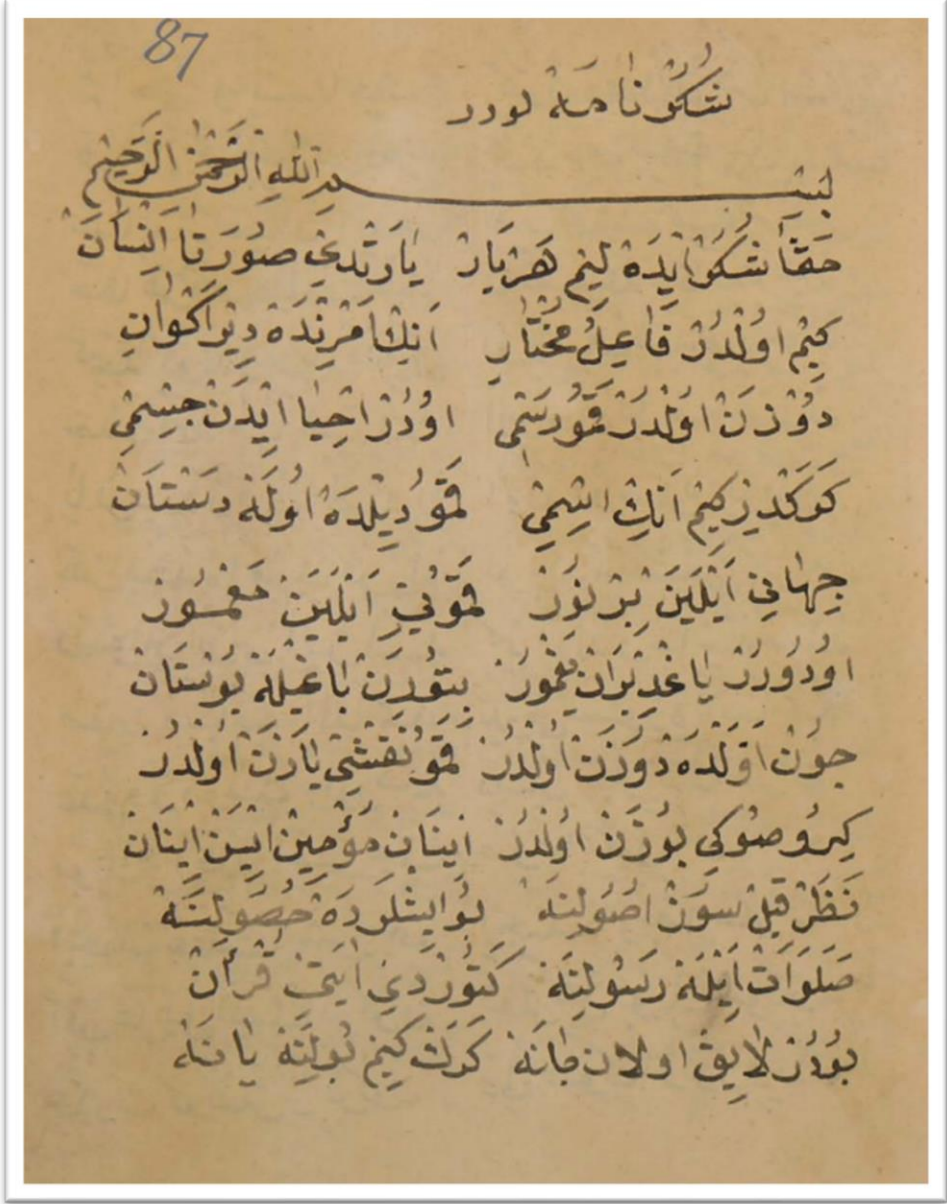 87
شُكُرْ نَامَهٔ بودر
بسم الله الرحمن الرحيم
حَقَّا شُكُرْ ايِدَهْ لِيِمْ هَرْ بَارْ يَارَتْدِيِ صُورَتَا اِنْسَانْ
كِيِمْ اوُلْدُرْ فَاعِلُ مُخْتَارِ اَنِكْ اَمْرِنْدَهْ
دُوُزَنْ اوُلْدُرْ قَمُو رَسْمِي اوُدُرْ اِحْيَا ايِدَنْ جِسْمِي
كَرَكْدِرْ كِيِمْ اَنِكْ اِسْمِي قَمُو دِيِلْدَهْ اوُلَهْ دَسْتَانْ
جِهَانِي اَيْلَيَنْ بِرْ نُورْ قَمُونِي اَيْلَيَنْ مَعْمُورْ
اوُدُورُرْ يَاغْدِيرَانْ يَغْمُورْ بِتُورَنْ بَاغِيلَهْ بُوسْتَانْ
چُونْ اَوَّلْدَهْ دُوزَنْ اوُلْدُرْ قَمُو نَقْشِي يَازَنْ اوُلْدُرْ
كِيرُو صُوكِي بُوزَنْ اوُلْدُرْ اِينَانْ مُؤْمِينْ اِيسَنْ اِينَانْ
نَظَرْ قِيلْ سُوزْ اُصُولِينَهْ بُو اِيشْلَرْدَهْ حُصُولِينَهْ
صَلَوَاتْ اَيْلَهْ رَسُولِينَهْ كَتُورْدِي اَيَتِي قُرْأَنْ
بُودُرْ لَايِقْ اولان جَانَهْ كَرَكْ كِيِمْ بُولِينَهْ يَانَهْ